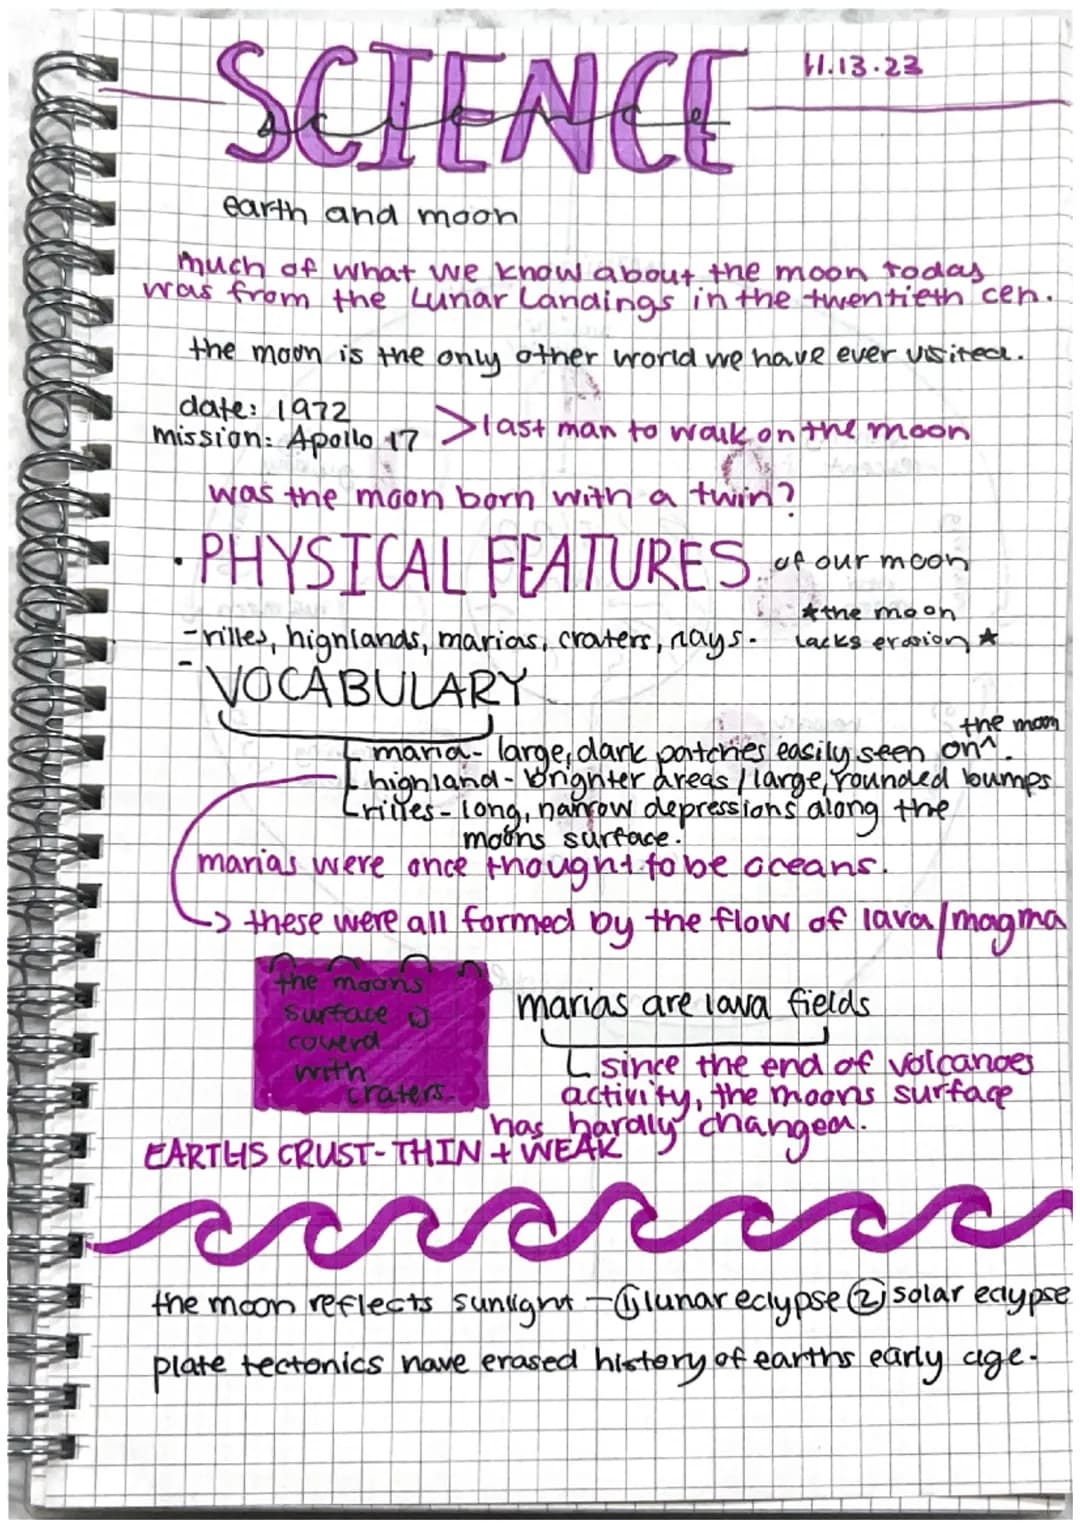 SCIENCE
science
11.13.23
earth and moon
much of what we know about the moon today
was from the Lunar Landings in the twentieth cen.
the moon is the only other world we have ever visited.
date: 1972
mission: Apollo 17
>last man to walk on the moon
was the moon born with a twin?
• PHYSICAL FEATURES of our moon
-rilles, highlands, marias, craters, rays.
★the moon
lacks erosion★
- VOCABULARY
maria- large, dark patches easily seen on^.
the moon
highland- brighter areas / large, rounded bumps
rilles- long, narrow depressions along the
moons surface.
marias were once thought to be oceans.
→ these were all formed by the flow of lava/magma
the moons
surface is
coverd
with
craters.
marias are lava fields
since the end of volcanoes
activity, the moons surface
has hardly changed.
EARTHS CRUST- THIN + WEAK
the moon reflects sunlight - ① lunar eclypse ② solar eclypse
plate tectonics have erased history of earths early age.